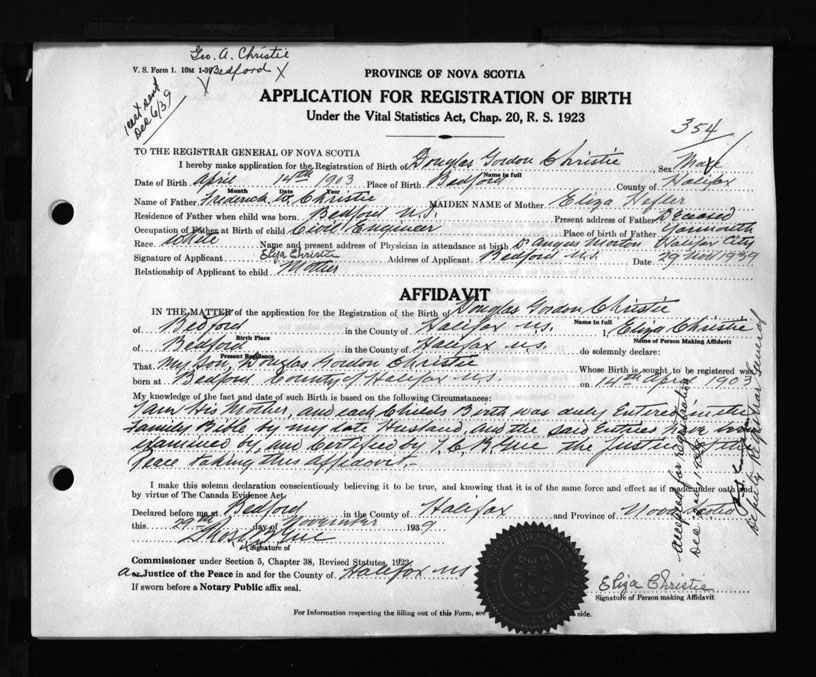 Geo. A. Christie
V. S. Form 1. 10M 1-39 Bedford X
1 cert sent
Dec 6/39
PROVINCE OF NOVA SCOTIA
APPLICATION FOR REGISTRATION OF BIRTH
Under the Vital Statistics Act, Chap. 20, R. S. 1923
354
TO THE REGISTRAR GENERAL OF NOVA SCOTIA
I hereby make application for the Registration of Birth of Douglas Gordon Christie, Sex Male
Name in full
Date of Birth April 14th 1903 Place of Birth Bedford County of Halifax
Month Date Year
Name of Father Frederick W. Christie MAIDEN NAME of Mother Eliza Hefler
Residence of Father when child was born Bedford N.S. Present address of Father Deceased
Occupation of Father at Birth of child Civil Engineer Place of birth of Father Yarmouth
Race White Name and present address of Physician in attendance at birth Dr Angus Morton Halifax City
Signature of Applicant Eliza Christie Address of Applicant Bedford N.S. Date 29 Nov 1939
Relationship of Applicant to child Mother
AFFIDAVIT
IN THE MATTER of the application for the Registration of the Birth of Douglas Gordon Christie
Name in full
of Bedford in the County of Halifax N.S. I, Eliza Christie
Birth Place Name of Person Making Affidavit
of Bedford in the County of Halifax N.S. do solemnly declare:
Present Residence
That My Son, Douglas Gordon Christie Whose Birth is sought to be registered was
born at Bedford County of Halifax N.S. on 14th April 1903
My knowledge of the fact and date of such Birth is based on the following Circumstances:
I am His Mother, and each Childs Birth was duly Entered in the
Family Bible by my late Husband, and the said Entries have been
examined by, and Certified by T. C. B. the Justice of the
Peace taking this affidavit.
I make this solemn declaration conscientiously believing it to be true, and knowing that it is of the same force and effect as if made under oath and
by virtue of The Canada Evidence Act.
Declared before me at Bedford in the County of Halifax and Province of Nova Scotia
this 29th day of November 1939
Signature of
Commissioner under Section 5, Chapter 38, Revised Statutes, 1923
a or Justice of the Peace in and for the County of Halifax N.S.
If sworn before a Notary Public affix seal.
Eliza Christie
Signature of Person making Affidavit
For Information respecting the filling out of this Form, see side.
accepted for registration
Dec
Deputy Registrar General